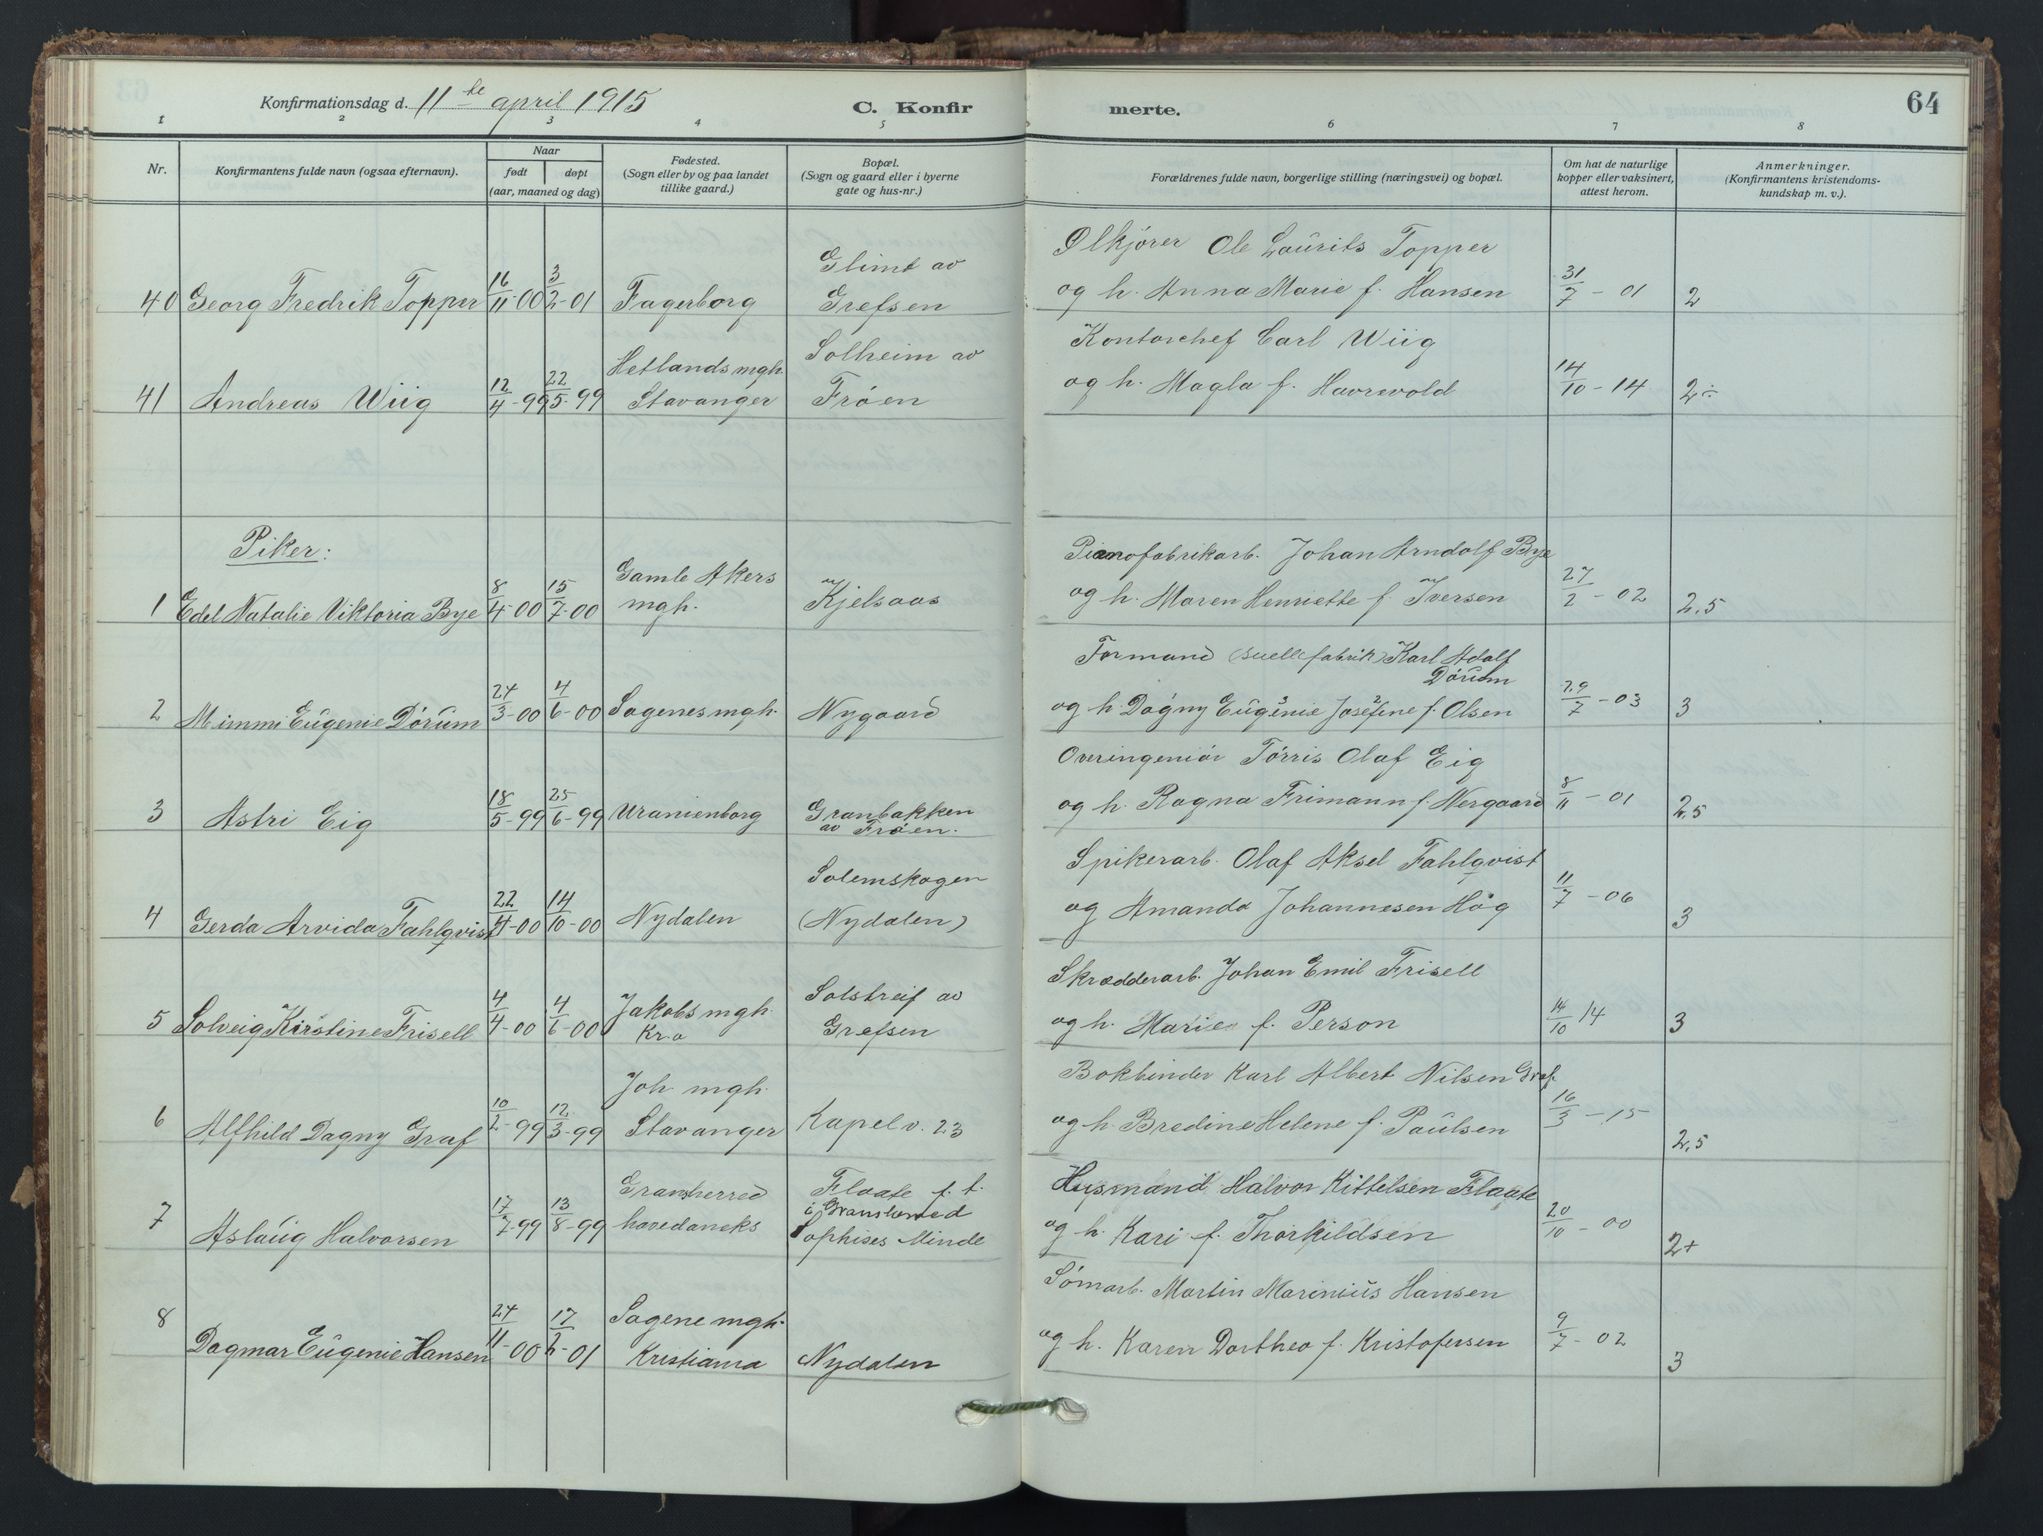 Konfirmationsdag d. 11te april 1915 C. Konfirmerte. 64
1 2 3 4 5 6 7 8
Nr. Konfirmantens fulde navn (ogsaa efternavn). Naar født døpt (aar, maaned og dag) Fødested. (Sogn eller by og paa landet tillike gaard.) Bopæl. (Sogn og gaard eller i byerne gate og hus-nr.) Forældrenes fulde navn, borgerlige stilling (næringsvei) og bopæl. Om hat de naturlige kopper eller vaksinert, attest herom. Anmerkninger. (Konfirmantens kristendoms-kundskap m. v.).
Glimt av Ølkjører Ole Laurits Topper
40 Georg Fredrik Topper 16/11-00 3/2-01 Fagerborg Grefsen og h. Anna Marie f. Hansen 31/7 - 01 2
Hetlands mgh. Solheim av Kontorchef Carl Wiig
41 Andreas Wiig 12/4-99 22/5-99 Stavanger Frøen og h. Magla f. Havrevold 14/10 - 14 2÷
Piker:
Gamle Akers Pianofabrikarb. Johan Arndolf Bye
1 Edel Natalie Viktoria Bye 8/4-00 15/7-00 mgh. Kjelsaas og h. Maren Henriette f. Iversen 27/2 - 02 2,5
Formand (suellefabrik) Karl Adolf
Dørum
2 Mimmi Eugenie Dørum 24/3-00 4/6-00 Sagenes mgh. Nygaard og h. Dagny Eugenie Josefine f. Olsen 29/7 - 03 3
Overingeniør Tørris Olaf Eig
3 Astri Eig 18/5-99 25/6-99 Uranienborg Granbakken av Frøen. og h. Ragna Frimann f. Nergaard 8/11 - 01 2,5
Solemskogen Spikerarb. Olaf Aksel Fahlqvist
4 Gerda Arvida Fahlqvist 22/4-00 14/10-00 Nydalen (Nydalen) og Amanda Johannesen Høg 11/7 - 06 3
Jakobs mgh. Solstreif av Skrædderarb. Johan Emil Frisell
5 Solveig Kirstine Frisell 4/4-00 4/6-00 Kr.a Grefsen og h. Marie f. Person 14/10 14 3
Joh. mgh. Bokbinder Karl Albert Nilsen Graf
6 Alfhild Dagny Graf 10/2-99 12/3-99 Stavanger Kapelv. 23 og h. Bredine Helene f. Paulsen 16/3 - 15 2,5
Gransherred Flaate f. t. Husmand Halvor Kittelsen Flaate
i Gransherred
7 Aslaug Halvorsen 17/7-99 13/8-99 hovedaneks Sophises Minde og h. Kari f. Thorkildsen 20/10 - 00 2+
Sagene mgh. Sømarb. Martin Marinius Hansen
8 Dagmar Eugenie Hansen 24/11-00 17/2-01 Kristiania Nydalen og h. Karen Dorthea f. Kristofersen 9/7 - 02 3